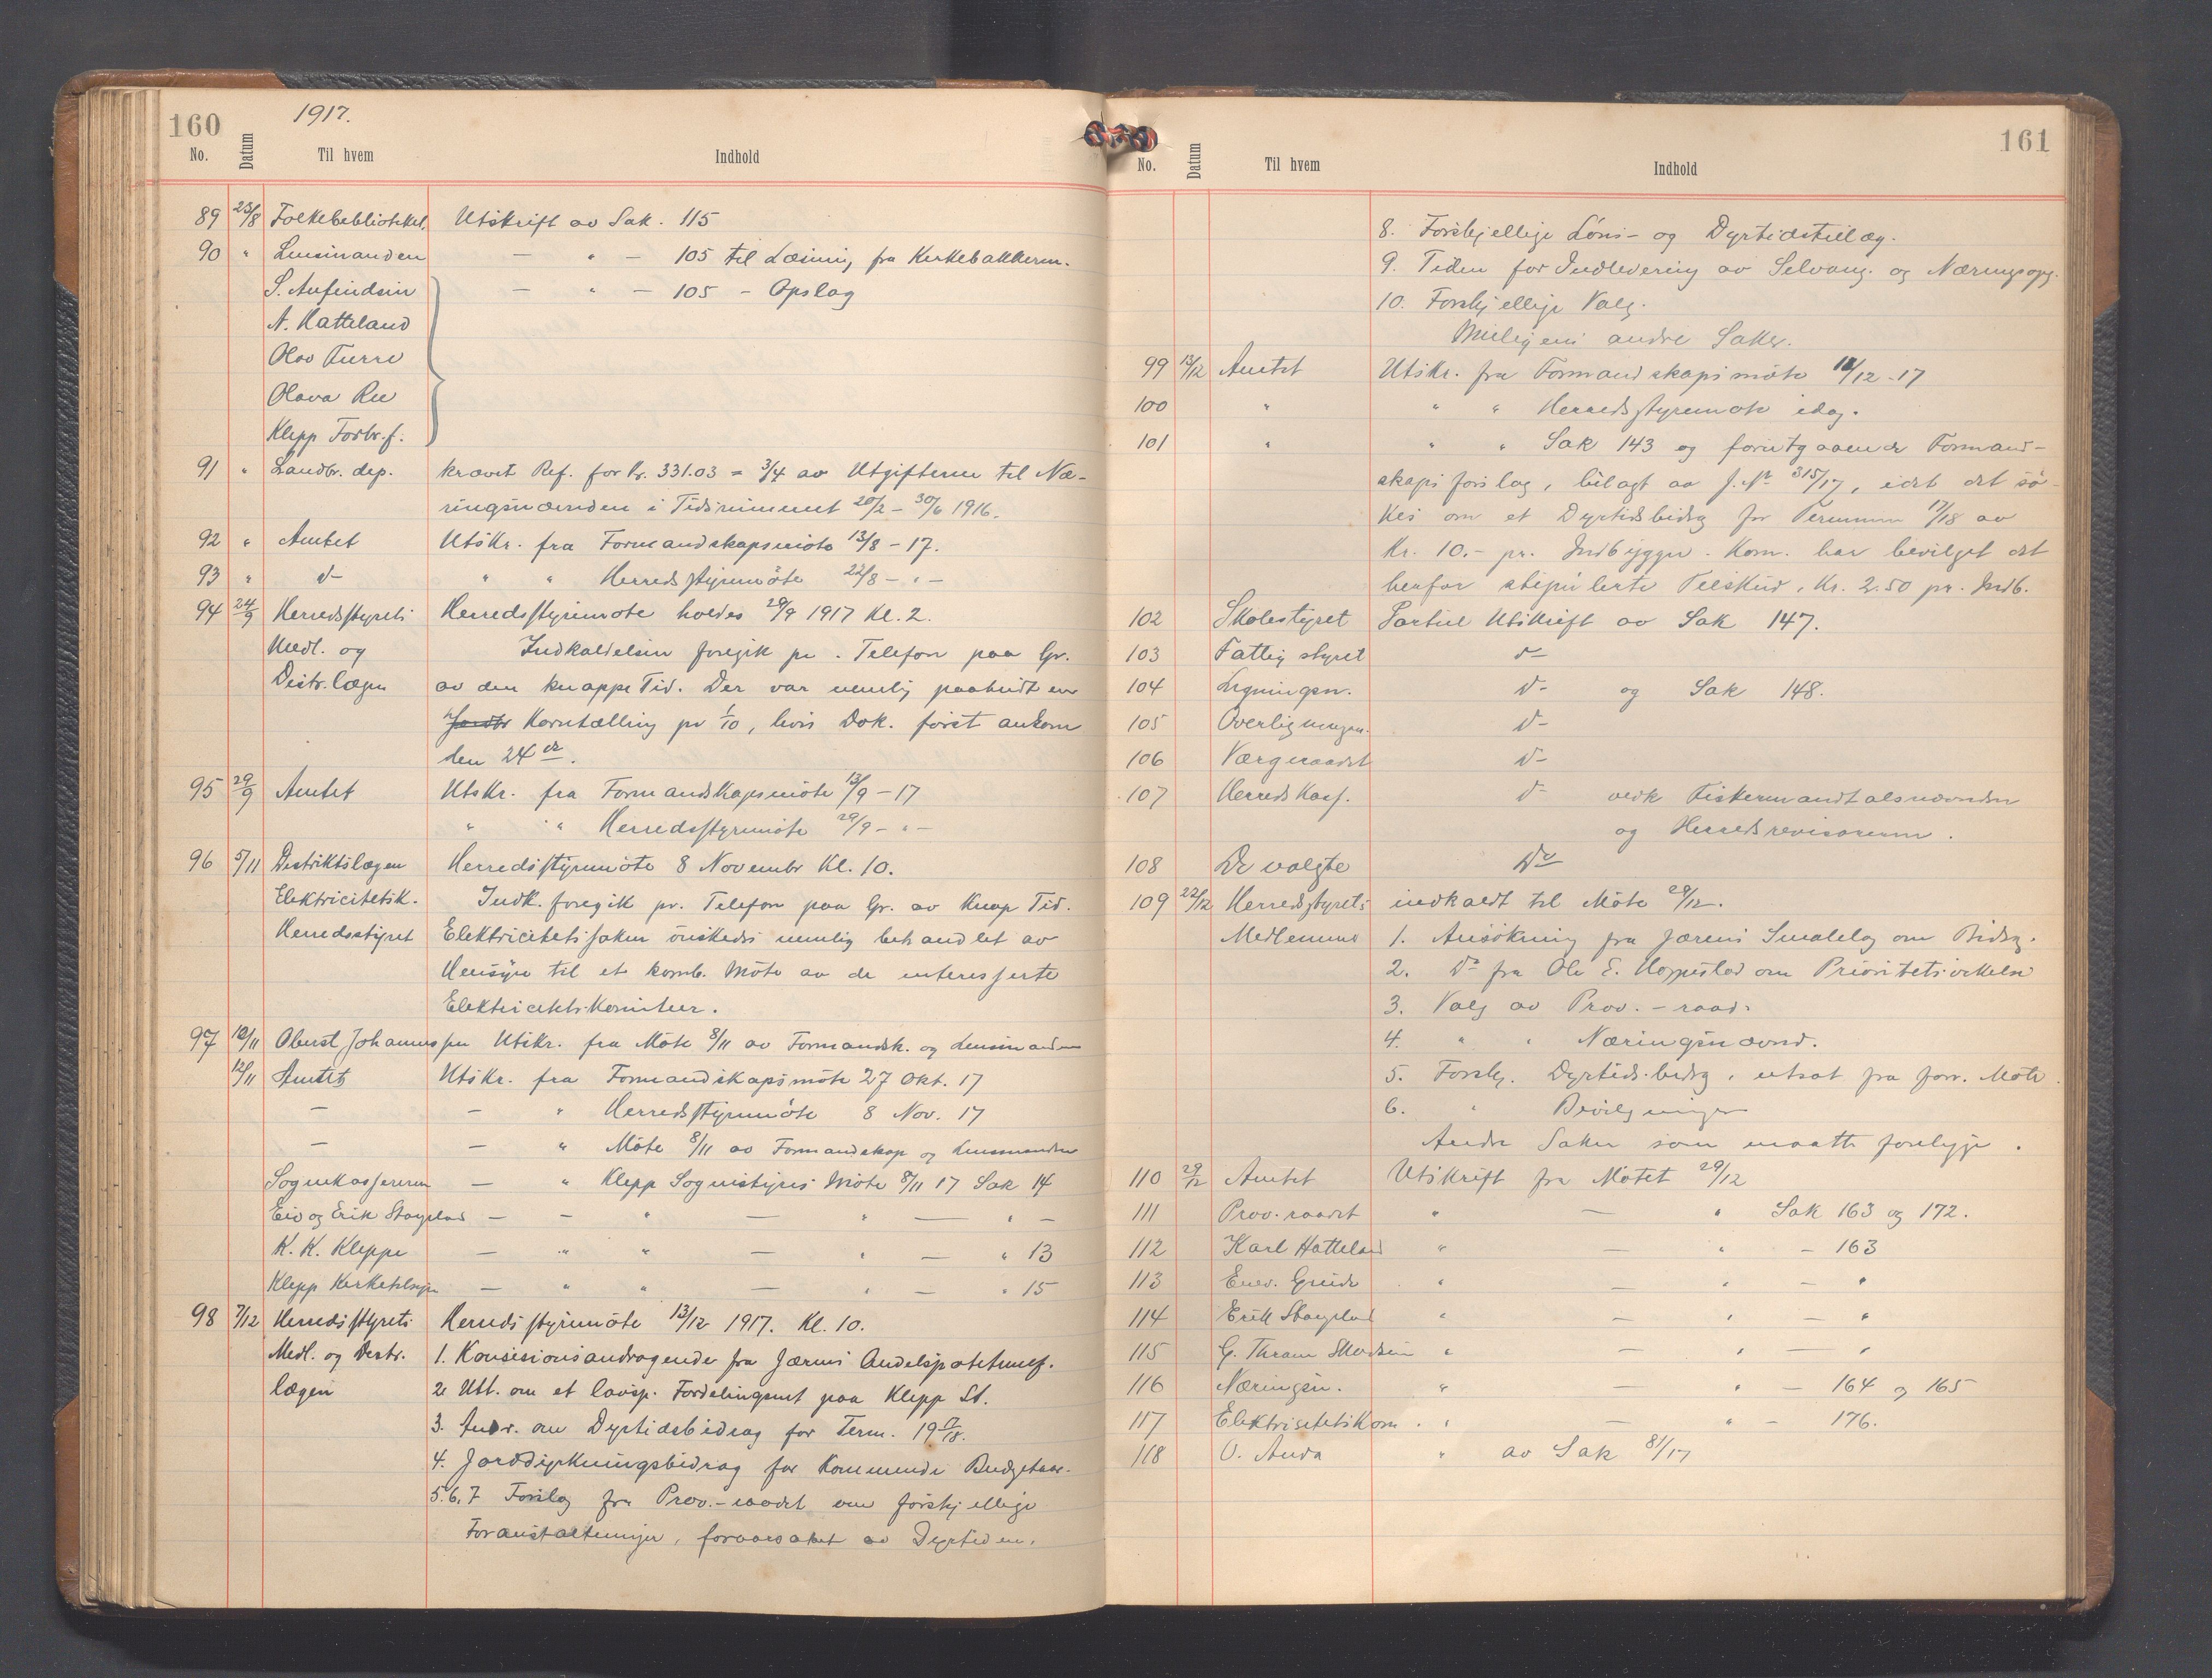 160
1917.
No. Datum Til hvem Indhold
89 23/8 Folkebiblioteket, Utskrift av Sak. 115
90 " Lensmanden — " — 105 til Læsning fra Kirkebakken.
S. Aufindsen — " — 105 - Opslag
A. Hatteland
Olav Furre
Olava Ree
Klepp Forbr.f.
91 " Landbr. dep. krævet Ref. for Kr. 331.03 = 3/4 av Utgifterne til Næ-
ringsnævnden i Tidsrummet 20/2 - 30/6 1916.
92 " Amtet Utskr. fra Formandskapsmöte 13/8 - 17.
93 " d- " " Herredsstyremöte 22/8 - " -
94 24/9 Herredsstyrets Herredsstyremöte holdes 29/9 1917 Kl. 2.
Medl. og Indkaldelsen foregik pr. Telefon paa Gr.
Distr.lægen av den knappe Tid. Der var nemlig paabudt en
Korntælling pr 1/10, hvis Dok. först ankom
den 24de.
95 29/9 Amtet Utskr. fra Formandskapsmöte 13/9 - 17
" " Herredsstyremöte 29/9 - " -
96 5/11 Distriktslægen Herredsstyremöte 8 November Kl. 10.
Elektricitetsk. Indk. foregik pr. Telefon paa Gr. av Knap Tid.
Herredsstyret Elektricitetssaken önskedes nemlig behandlet av
Hensyn til et komb. Möte av de interesserte
Elektricitets-Komiteer.
97 10/11 Oberst Johannessen Utskr. fra Möte 8/11 av Formandsk. og Lensmanden
12/11 Amtet Utskr. fra Formandskapsmöte 27 Okt. 17
— — " Herredsstyremöte 8 Nov. 17
— — " Möte 8/11 av Formandskap og Lensmanden
Sognekassereren — " Klepp Sognestyres Möte 8/11 17 Sak 14
Eiv og Erik Stangeland — — " — " — " —
K. K. Kleppe — " " — " — " 13
Klepp Kirketilsyn — " " — " — " 15
98 7/12 Herredsstyrets Herredsstyremöte 13/12 1917. Kl. 10.
Medl. og Distr. 1. Konsesionsandragende fra Jærens Andelspotetmelf.
lægen 2. Utt. om et lavsp. Fordelingsnet paa Klepp St.
3. Andr. om Dyrtidsbidrag for Term. 19 17/18.
4. Jorddyrkningsbidrag for Kommende Budgetaar.
5.6.7 Forslag fra Prov.-raadet om forskjellige
Foranstaltninger, foraarsaket av Dyrtiden.
161
No. Datum Til hvem Indhold
8. Forskjellige Löns- og Dyrtidstillæg.
9. Tiden for Indlevering av Selvang. og Næringsopg.
10. Forskjellige Valg.
Muligens andre Saker.
99 13/12 Amtet Utskr. fra Formandskapsmöte 11/12 - 17
100 " " " Herredsstyremöte idag.
101 " " " Sak 143 og forutgaaende Formand-
skapsforslag, bilagt av J.Nr 315/17, idet det sö-
kes om et Dyrtidsbidrag for Terminen 17/18 av
Kr. 10.- pr. Indbygger. Kom. har bevilget det
herfor stipulerte Tilskud, Kr. 2.50 pr. Indb.
102 Skolestyret Partiel Utskrift av Sak 147.
103 Fattigstyret d-
104 Ligningsn. d- og Sak 148.
105 Overligningsn. d-
106 Værgeraadet d-
107 Herredskass. d- vedk Fiskermandtalsnævnden
og Herredsrevisoren.
108 De valgte Do
109 22/12 Herredsstyrets indkaldt til Möte 29/12.
Medlemmer 1. Ansökning fra Jærens Smalelag om Bidrag.
2. Do fra Ole E. Hognestad om Prioritetsvikelse
3. Valg av Prov.-raad.
4. " " Næringsnævnd.
5. Forskj. Dyrtids-bidrag, utsat fra forr. Möte.
6. " Bevilgninger
Andre Saker som maatte foreligge.
110 29/12 Amtet Utskrift fra Mötet 29/12
111 Prov.raadet " — " Sak 163 og 172.
112 Karl Hatteland " — " — 163
113 Enev. Grude " — " — "
114 Erik Stangeland " — " — "
115 G. Thram " — " — "
116 Næringsn. " — " — 164 og 165
117 Elektrisitetskom. " — " — 176.
118 O. Anda " av Sak 81/17